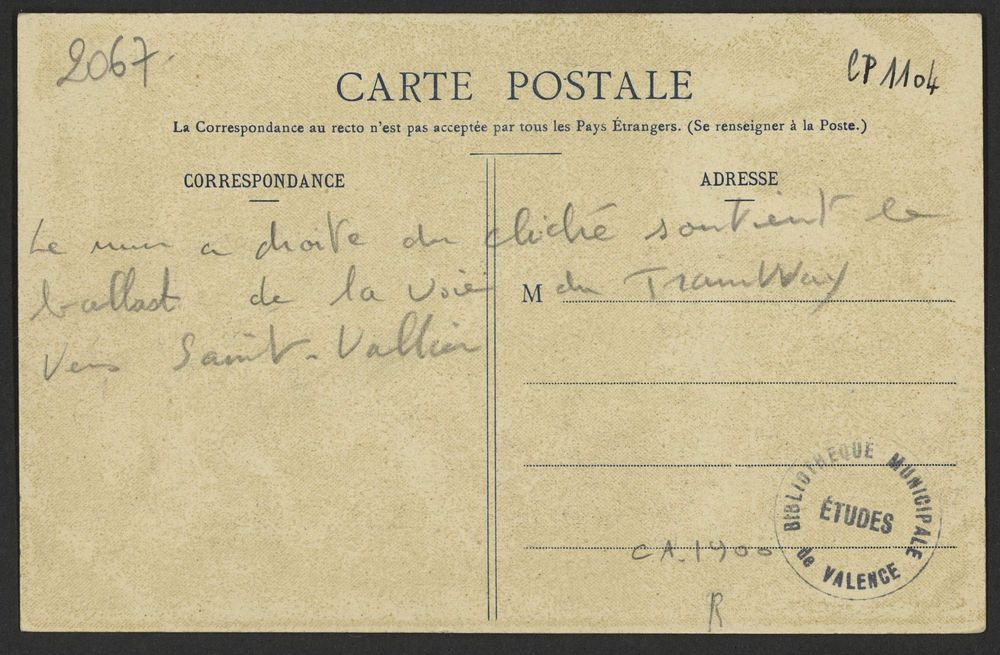 2067.
CP 1104
CARTE POSTALE
La Correspondance au recto n'est pas acceptée par tous les Pays Étrangers. (Se renseigner à la Poste.)
CORRESPONDANCE
ADRESSE
Le mur a droite du cliché soutient le
ballast de la voie du TramWay
Vers Saint-Vallier
M
BIBLIOTHEQUE MUNICIPALE
ÉTUDES
de VALENCE
CA.1900
R